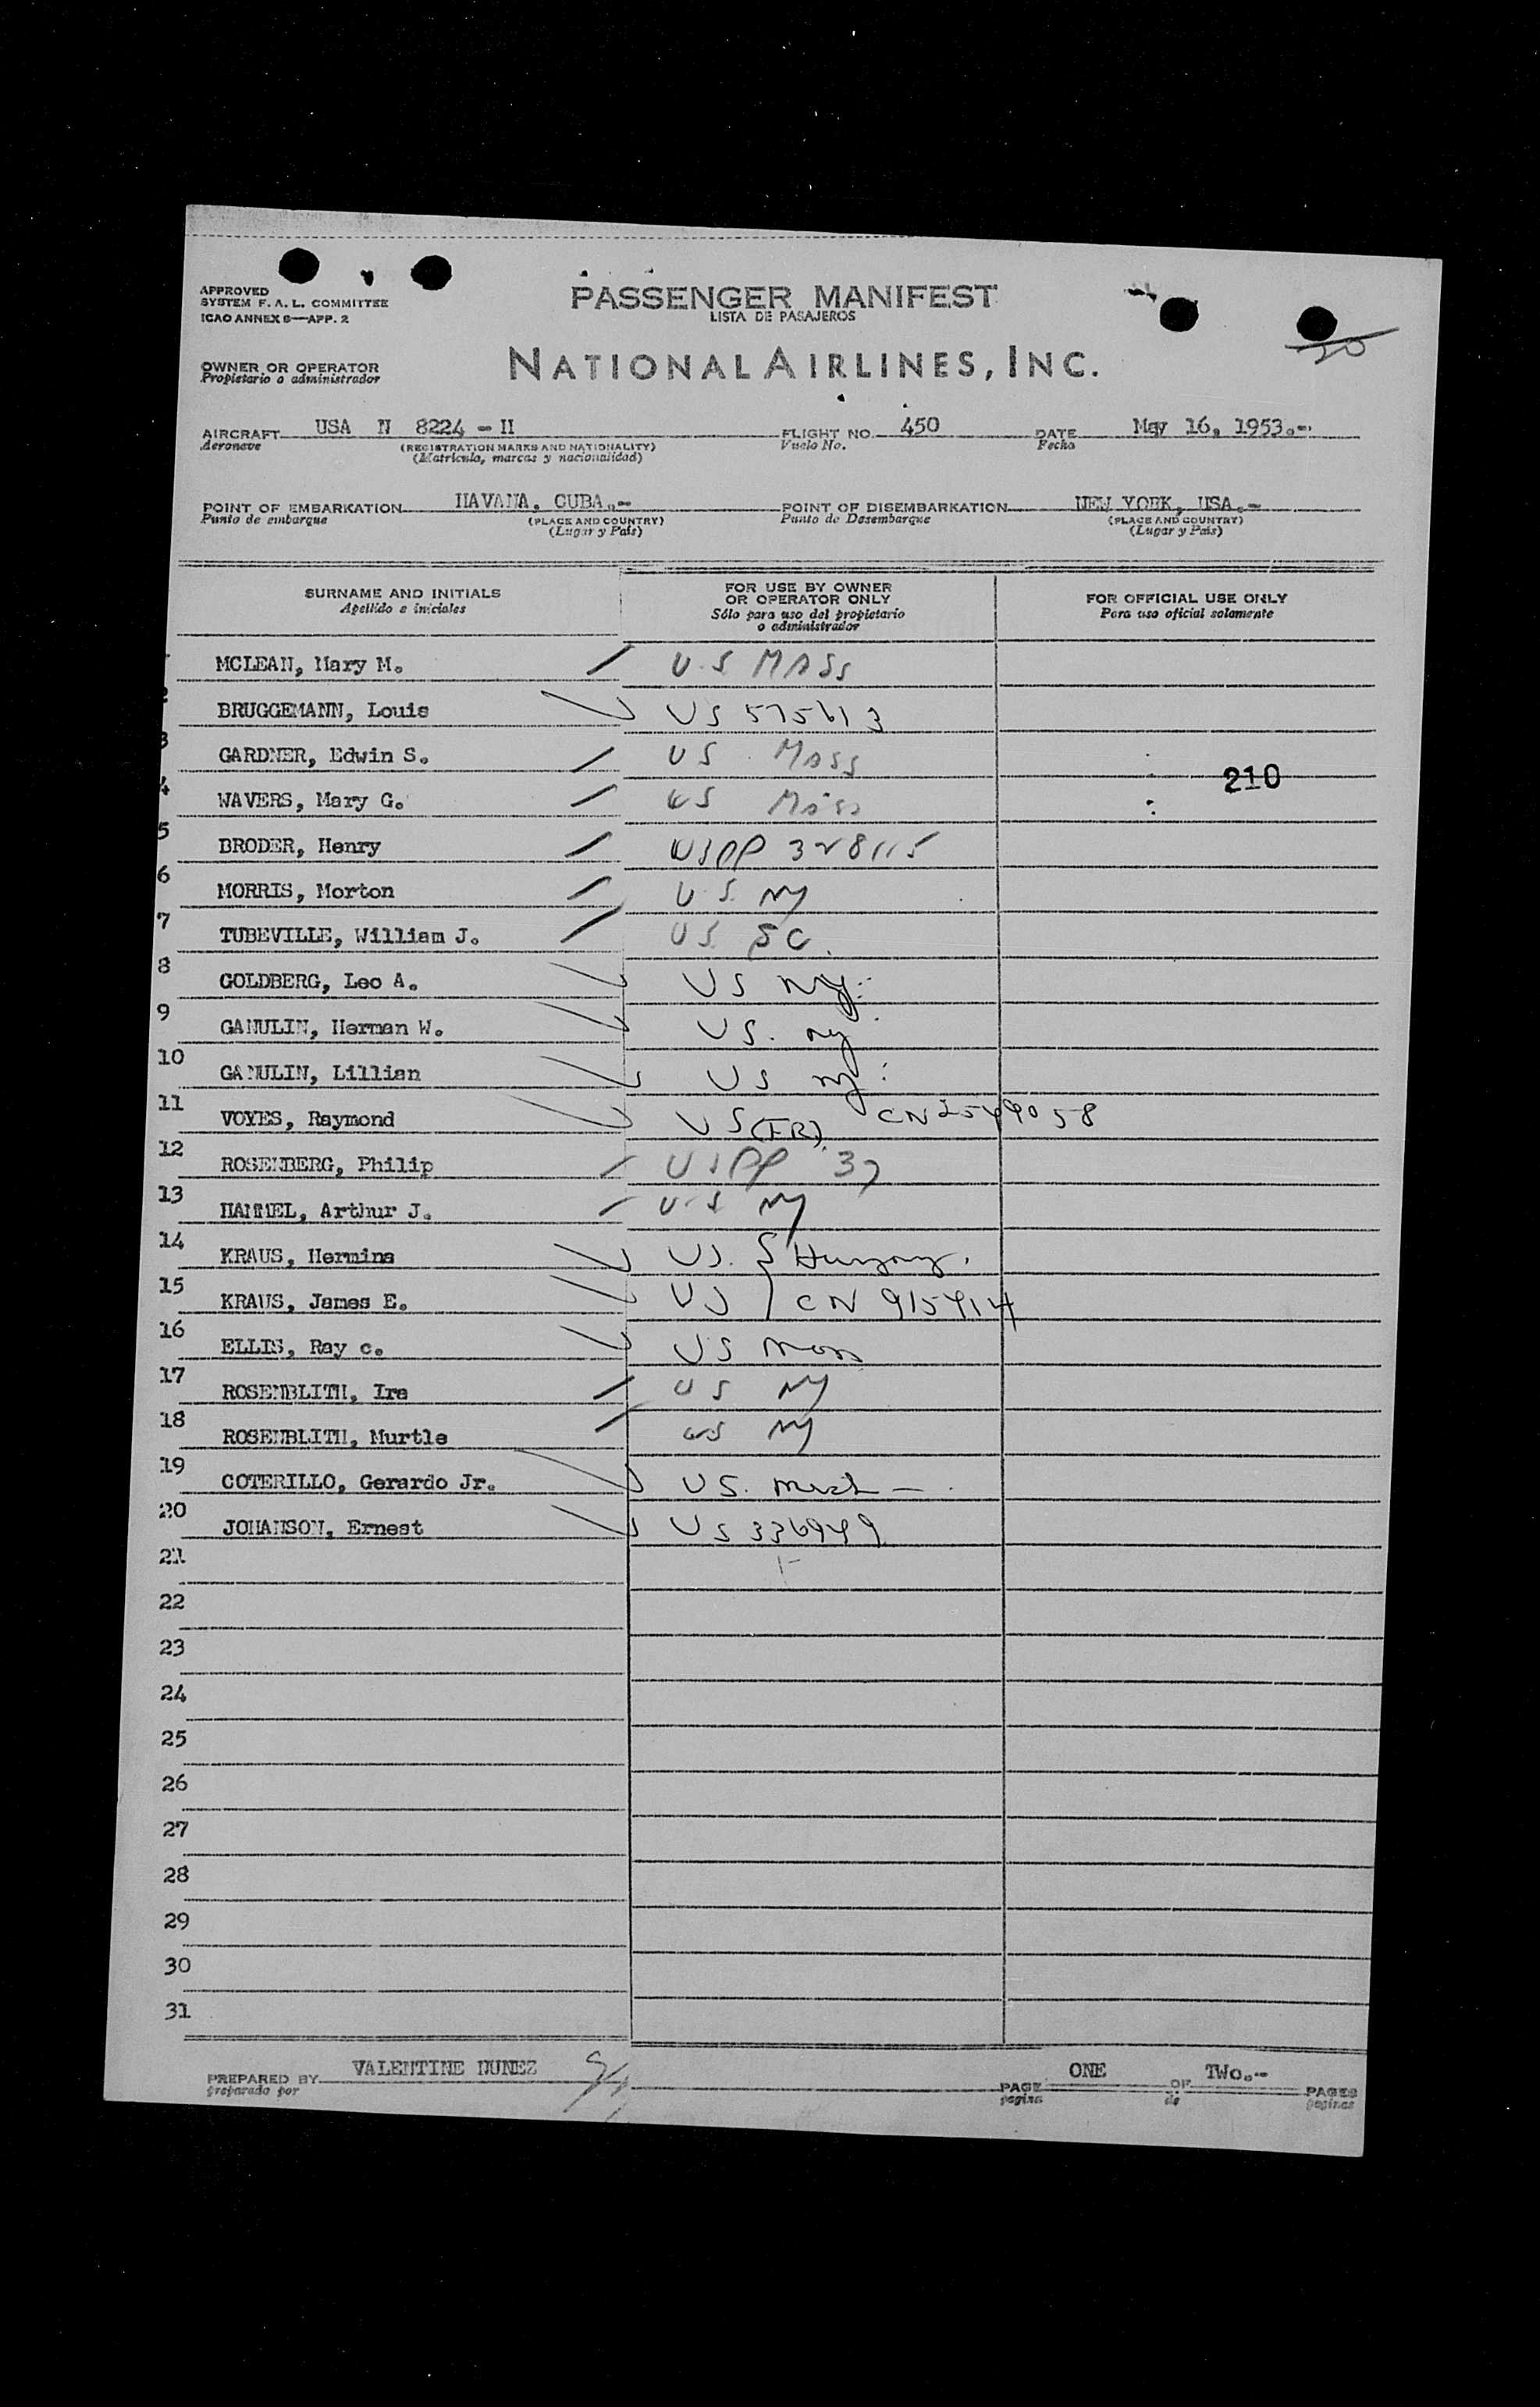 APPROVED
SYSTEM F. A. L. COMMITTEE
ICAO ANNEX 9—APP. 2
PASSENGER MANIFEST
LISTA DE PASAJEROS
OWNER OR OPERATOR
Propietario o administrador
NATIONAL AIRLINES, INC.
AIRCRAFT USA N 8224 - H FLIGHT NO. 450 DATE May 16, 1953.-
Aeronave (REGISTRATION MARKS AND NATIONALITY) Vuelo No. Fecha
(Matrícula, marcas y nacionalidad)
POINT OF EMBARKATION HAVANA, CUBA.- POINT OF DISEMBARKATION NEW YORK, USA.-
Punto de embarque (PLACE AND COUNTRY) Punto de Desembarque (PLACE AND COUNTRY)
(Lugar y País) (Lugar y País)
SURNAME AND INITIALS
Apellido e iniciales
FOR USE BY OWNER
OR OPERATOR ONLY
Sólo para uso del propietario
o administrador
FOR OFFICIAL USE ONLY
Para uso oficial solamente
MCLEAN, Mary M. U.S MASS
2 BRUGGEMANN, Louis US 575613
3 GARDNER, Edwin S. US MASS
210
4 WAVERS, Mary G. US Mass
5 BRODER, Henry USPP 328115
6 MORRIS, Morton U.S. NY
7 TUBEVILLE, William J. US SC.
8 GOLDBERG, Leo A. US NY
9 GANULIN, Herman W. US. ny
10 GANULIN, Lillian US ny
11 VOYES, Raymond US (FR) CN 2549058
12 ROSENBERG, Philip USPP 37
13 HAMMEL, Arthur J. U.S NY
14 KRAUS, Hermina US. Hungary.
15 KRAUS, James E. US CN 915414
16 ELLIS, Ray c. US Mass
17 ROSENBLITH, Ira US NY
18 ROSENBLITH, Murtle US NY
19 COTERILLO, Gerardo Jr. US. Mich —
20 JOHANSON, Ernest US 336949
21
22
23
24
25
26
27
28
29
30
31
PREPARED BY VALENTINE NUNEZ PAGE ONE OF TWO.- PAGES
preparado por pagina de paginas